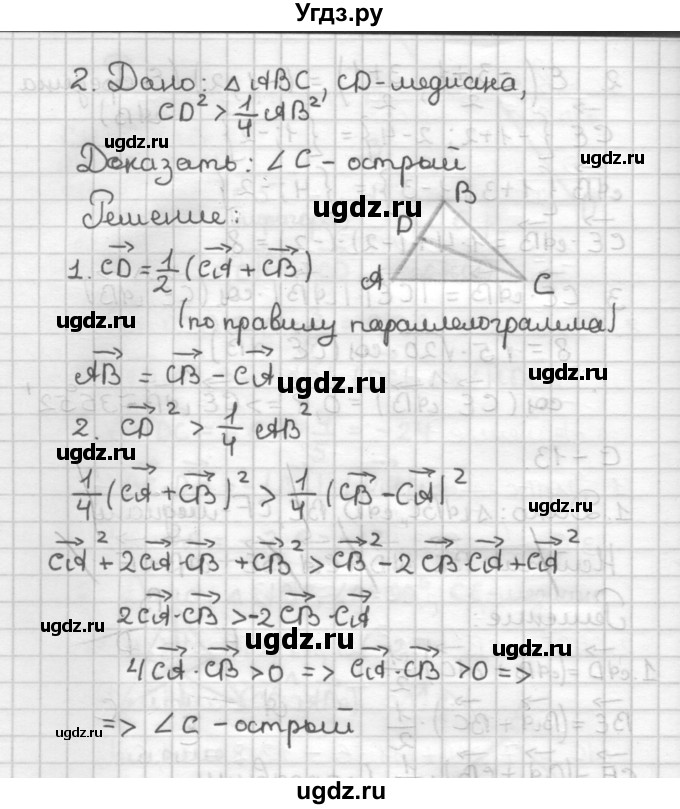 Угдз.ру
2. Дано: △ ABC, CD-медиана,
CD² > 1/4 AB²
ugdz.ru
Доказать: ∠C - острый
ugdz.ru
ugdz.ru
Решение:
B
D
A
C
1. CD = 1/2 (CA + CB)
ugdz.ru
ugdz.ru
(по правилу параллелограмма)
AB = CB - CA
ugdz.ru
ugdz.ru
2. CD² > 1/4 AB²
ugdz.ru
1/4 (CA + CB)² > 1/4 (CB - CA)²
ugdz.ru
CA² + 2CA·CB + CB² > CB² - 2CB·CA + CA²
ugdz.ru
2CA·CB > -2CB·CA
ugdz.ru
ugdz.ru
4CA·CB > 0 => CA·CB > 0 =>
=> ∠C - острый
ugdz.ru
ugdz.ru